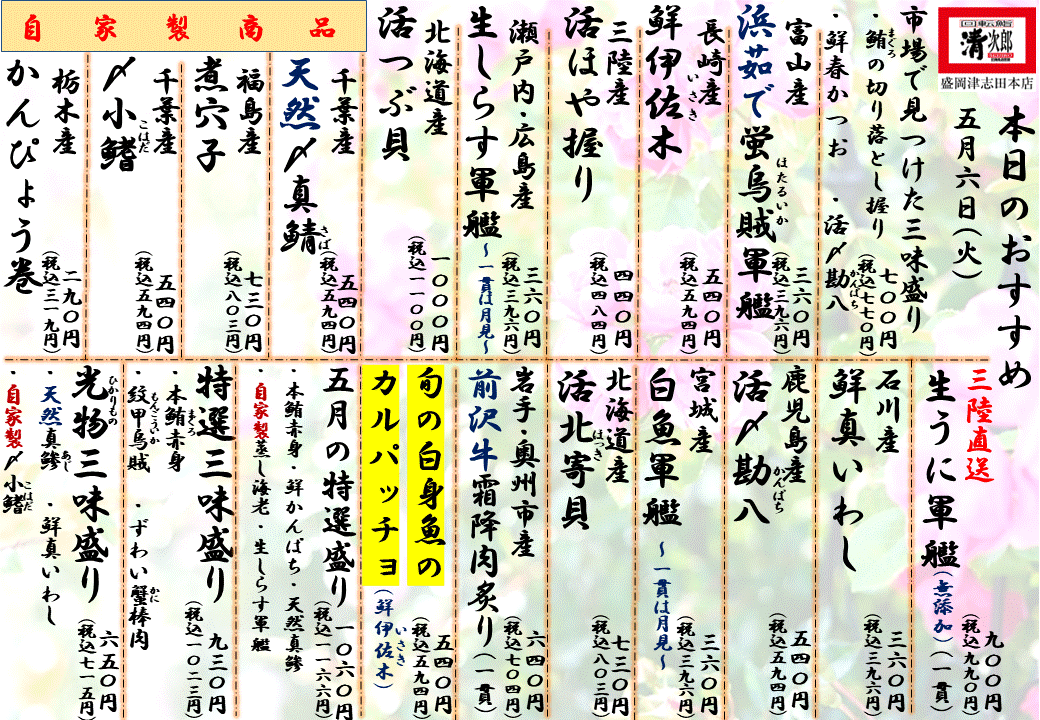 回転鮨
清次郎
盛岡津志田本店
本日のおすすめ
五月六日(火)
市場で見つけた三味盛り
・鮪の切り落とし握り
まぐろ
・鮮春かつお ・活〆勘八
かんぱち
七〇〇円
(税込七七〇円)
富山産
浜茹で蛍烏賊軍艦
ほたるいか
三六〇円
(税込三九六円)
長崎産
鮮伊佐木
いさき
五四〇円
(税込五九四円)
三陸産
活ほや握り
四四〇円
(税込四八四円)
瀬戸内・広島産
生しらす軍艦
~一貫は月見~
三六〇円
(税込三九六円)
北海道産
活つぶ貝
一〇〇〇円
(税込一一〇〇円)
自家製商品
千葉産
天然〆真鯖
さば
五四〇円
(税込五九四円)
福島産
煮穴子
七三〇円
(税込八〇三円)
千葉産
〆小鰭
こはだ
五四〇円
(税込五九四円)
栃木産
かんぴょう巻
二九〇円
(税込三一九円)
三陸直送
生うに軍艦
(無添加)(一貫)
九〇〇円
(税込九九〇円)
石川産
鮮真いわし
三六〇円
(税込三九六円)
鹿児島産
活〆勘八
かんぱち
五四〇円
(税込五九四円)
宮城産
白魚軍艦
~一貫は月見~
三六〇円
(税込三九六円)
北海道産
活北寄貝
ほっき
七三〇円
(税込八〇三円)
岩手・奥州市産
前沢牛霜降肉炙り(一貫)
六四〇円
(税込七〇四円)
旬の白身魚の
カルパッチョ
(鮮伊佐木)
いさき
五四〇円
(税込五九四円)
五月の特選盛り
・本鮪赤身・鮮かんぱち・天然真鯵
・自家製蒸し海老・生しらす軍艦
一〇六〇円
(税込一一六六円)
特選三味盛り
・本鮪赤身
まぐろ
・紋甲烏賊 ・ずわい蟹棒肉
もんこういか
かに
九三〇円
(税込一〇二三円)
光物三味盛り
ひかりもの
・天然真鯵 ・鮮真いわし
あじ
・自家製〆小鰭
こはだ
六五〇円
(税込七一五円)